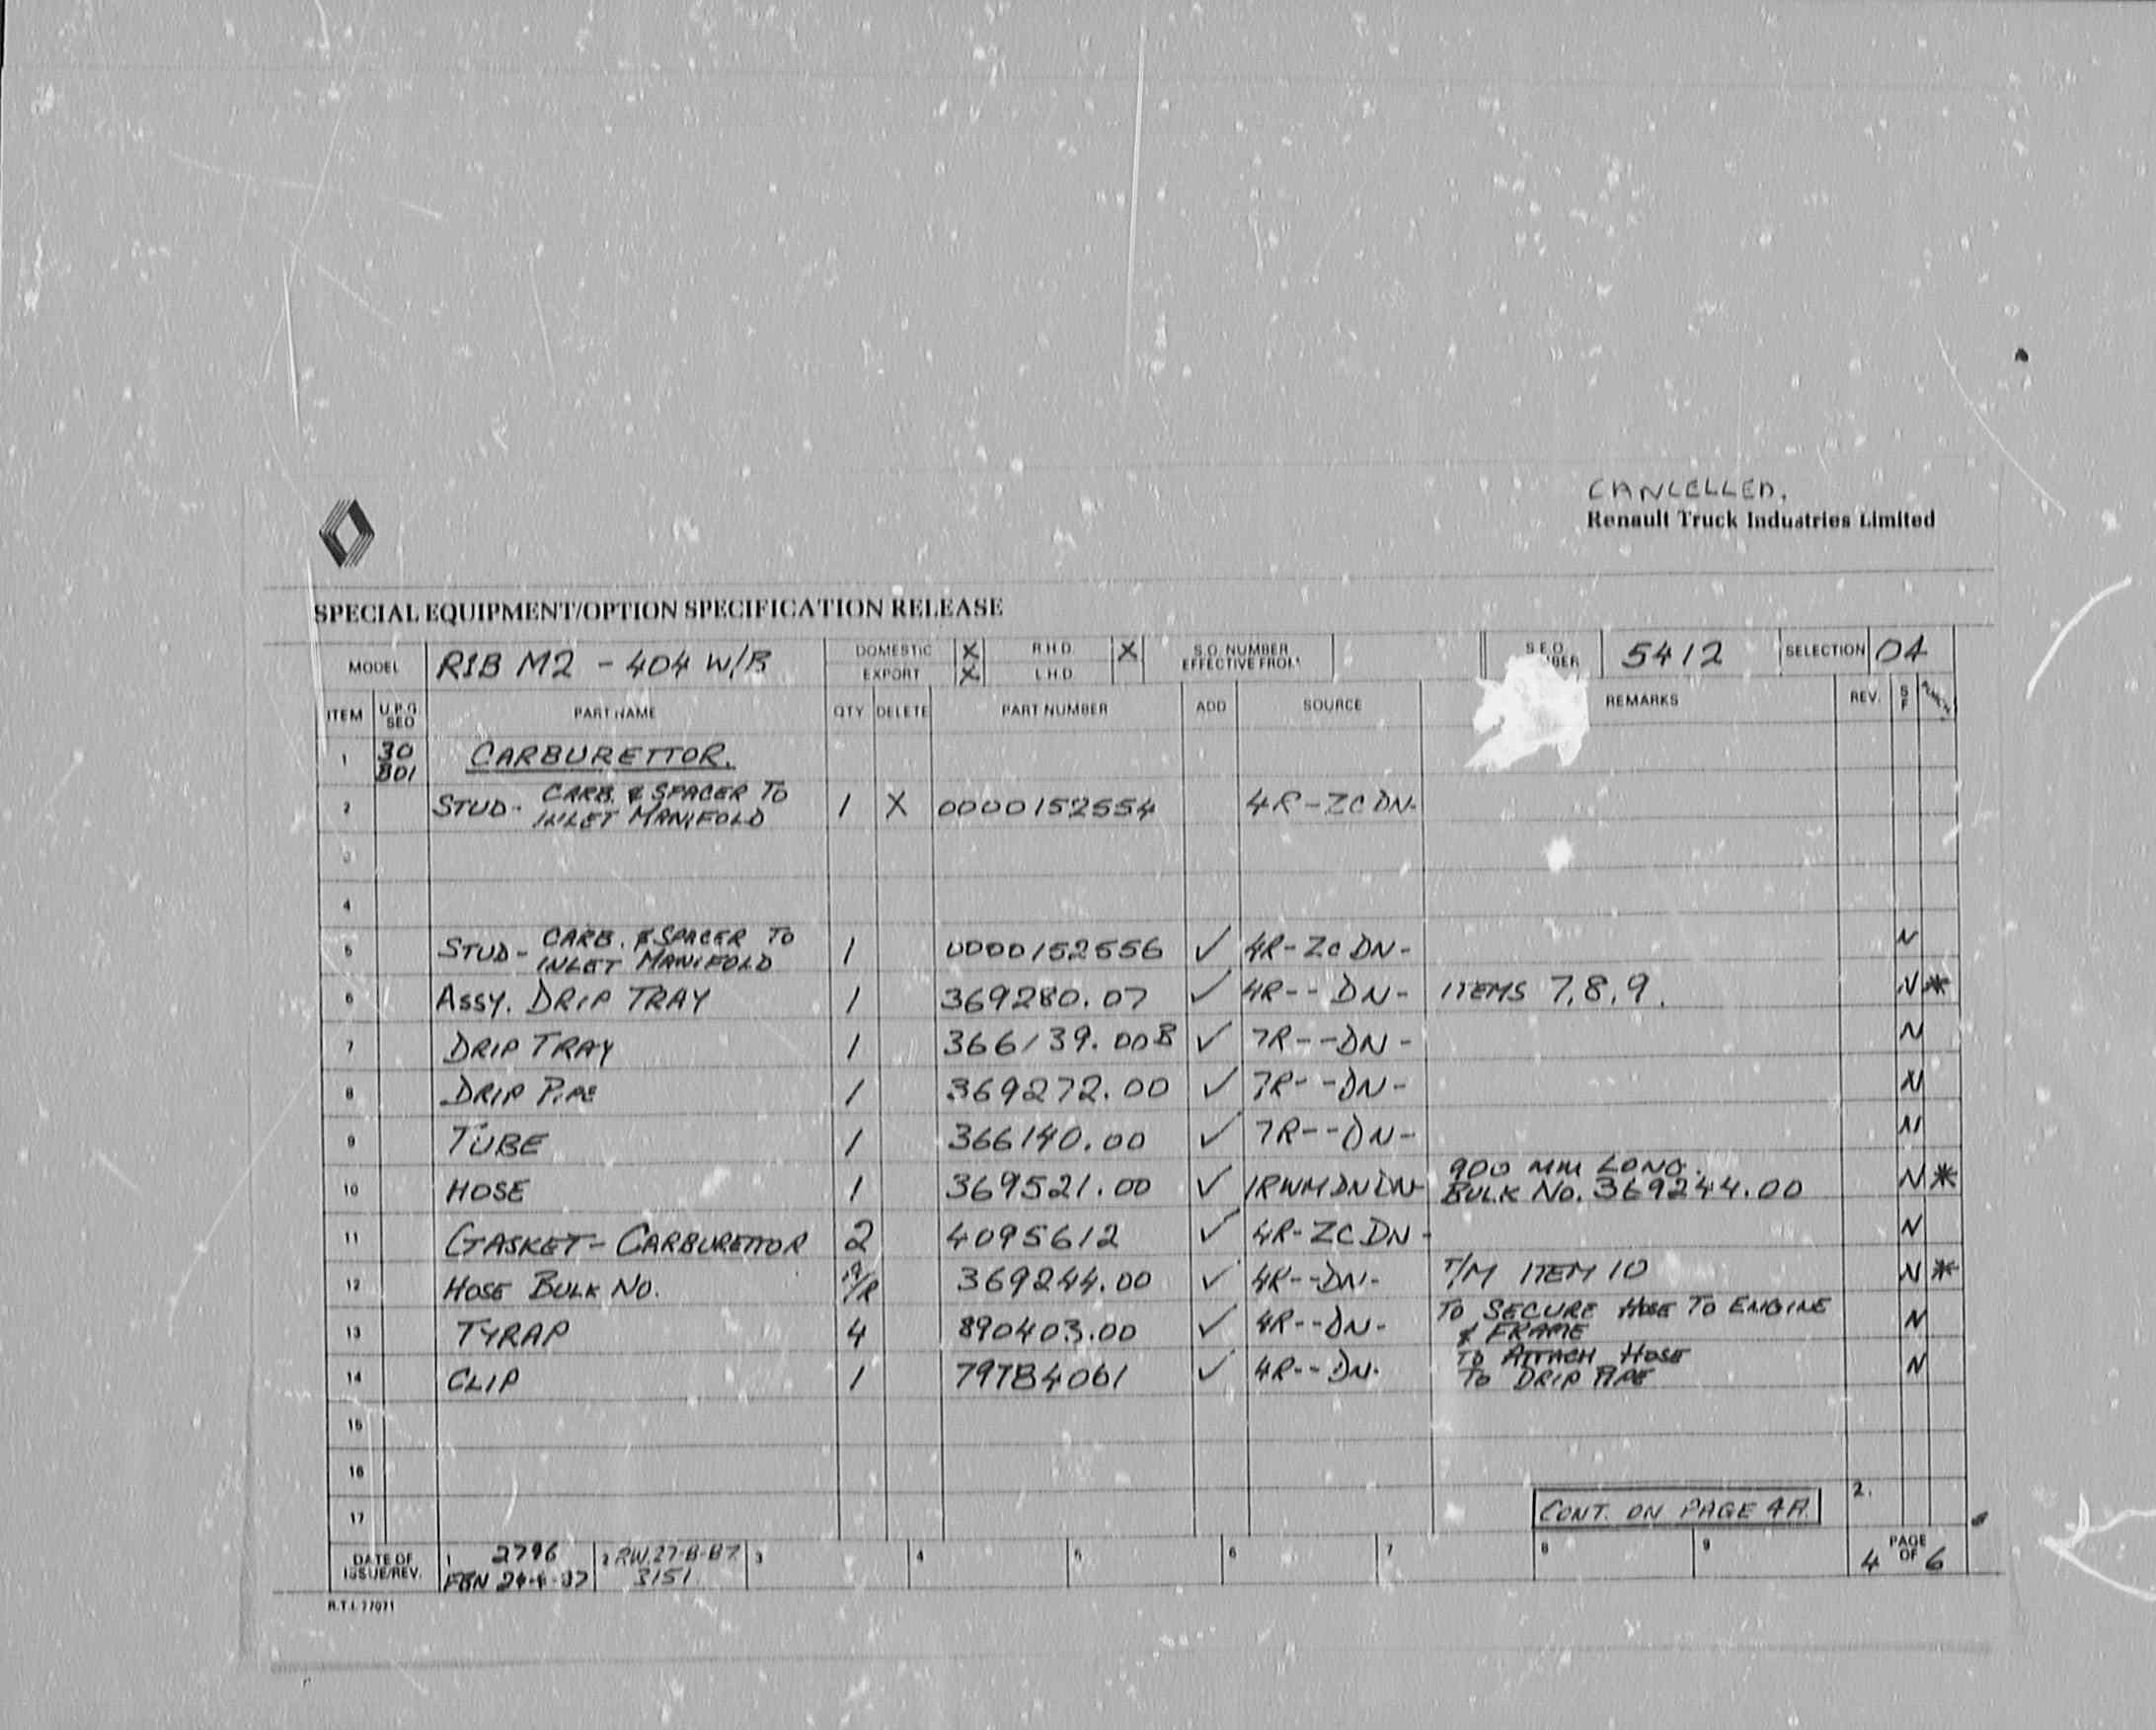 CANCELLED.
Renault Truck Industries Limited
SPECIAL EQUIPMENT/OPTION SPECIFICATION RELEASE
MODEL R1B M2 - 404 W/B DOMESTIC X R.H.D. X S.O. NUMBER 5412 SELECTION 04
EXPORT X L.H.D. EFFECTIVE FROM
ITEM U.P.G. SEQ PART NAME QTY DELETE PART NUMBER ADD SOURCE REMARKS REV. S F
1 30 B01 CARBURETTOR.
2 STUD- CARB. & SPACER TO INLET MANIFOLD 1 X 0000152554 4R-ZCDN-
3
4
5 STUD- CARB. & SPACER TO INLET MANIFOLD 1 0000152556 ✓ 4R-ZCDN- N
6 ASSY. DRIP TRAY 1 369280.07 ✓ 4R--DN- ITEMS 7,8,9. N *
7 DRIP TRAY 1 366139.00B ✓ 7R--DN- N
8 DRIP PIPE 1 369272.00 ✓ 7R--DN- N
9 TUBE 1 366140.00 ✓ 7R--DN- N
10 HOSE 1 369521.00 ✓ 1RWMDNDN- 900 MM LONG. BULK NO. 369244.00 N *
11 GASKET-CARBURETTOR 2 4095612 ✓ 4R-ZCDN- N
12 HOSE BULK NO. A/R 369244.00 ✓ 4R--DN- T/M ITEM 10 N *
13 TYRAP 4 890403.00 ✓ 4R--DN- TO SECURE HOSE TO ENGINE & FRAME N
14 CLIP 1 79TB4061 ✓ 4R--DN- TO ATTACH HOSE TO DRIP PIPE N
15
16
17 CONT. ON PAGE 4A. 2.
DATE OF ISSUE/REV. 1 2796 2 RW.27-8-87 3 4 5 6 7 8 9 4 PAGE OF 6
3151
R.T.I. 77071